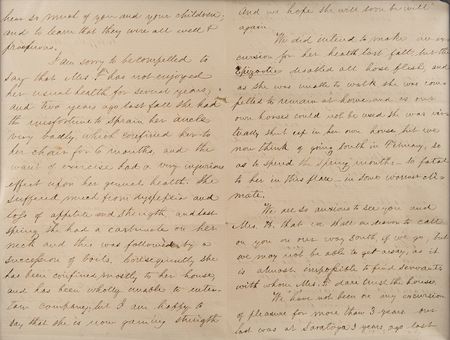 hear so much of you and your children,
and to learn that they were all well &
prosperous.
I am sorry to be compelled to
say that Mrs F has not enjoyed
her usual health for several years,
and two years ago last fall she had
the misfortune to sprain her ancle
very badly, which confined her to
her chair for 6 months, and the
want of exercise had a very injurious
effect upon her general health. She
suffered much from dyspepsia and
loss of appetite and strength, and last
spring she had a carbuncle on her
neck and this was followed by a
succession of boils. Consequently she
has been confined mostly to her house,
and has been wholly unable to enter-
tain company, but I am happy to
say that she is now gaining strength
And we hope she will soon be well
again
We did intend to make an ex-
cursion for her health last fall, but the
Epizootic disabled all horse flesh, and
as she was unable to walk she was com-
pelled to remain at home, and as our
own horses could not be used she was vir-
tually shut up in her own house, but we
now think of going south in February, so
as to spend the spring months - so fatal
to her in this place - in some warmer cli-
mate.
We are so anxious to see you and
Mrs. B. that we shall endeavor to call
on you on our way south, if we go, but
we may not be able to get away, as it
is almost impossible to find servants
with whom Mrs. F dare trust the house.
We have not been on any excursion
of pleasure for more than 3 years our
last was at Saratoga 3 years ago last